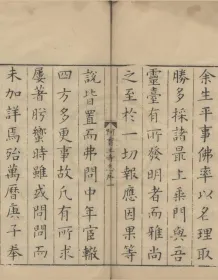 余生平事佛率以名理取
勝多採諸最上乘門與吾
靈臺有所發明者而雅尚
之至於一切報應因果等
說皆置而弗問中年宦轍
四方多更事故凡有所求
屢著肸蠁時雖或問問而
未加詳焉殆萬曆庚子奉